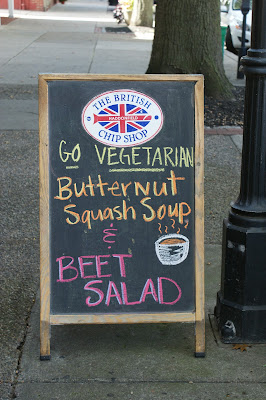 THE BRITISH
HADDONFIELD
CHIP SHOP
GO VEGETARIAN
Butternut
Squash Soup
&
BEET
SALAD